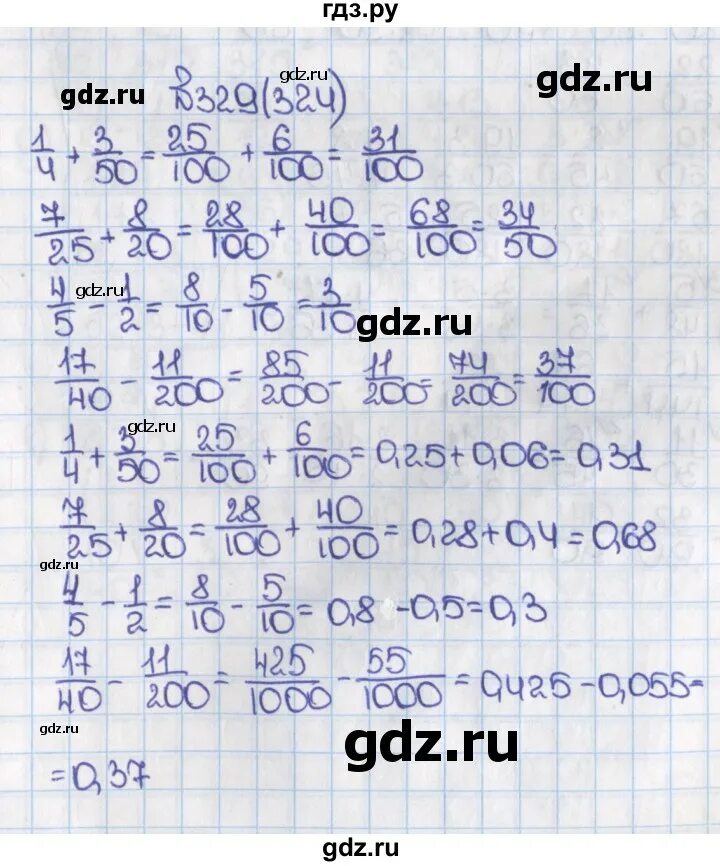 гдз.ру
gdz.ru
gdz.ru
gdz.ru
№329(324)
1/4 + 3/50 = 25/100 + 6/100 = 31/100
7/25 + 8/20 = 28/100 + 40/100 = 68/100 = 34/50
gdz.ru
4/5 - 1/2 = 8/10 - 5/10 = 3/10
gdz.ru
17/40 - 11/200 = 85/200 - 11/200 = 74/200 = 37/100
gdz.ru
1/4 + 3/50 = 25/100 + 6/100 = 0,25 + 0,06 = 0,31
7/25 + 8/20 = 28/100 + 40/100 = 0,28 + 0,4 = 0,68
gdz.ru
4/5 - 1/2 = 8/10 - 5/10 = 0,8 - 0,5 = 0,3
17/40 - 11/200 = 425/1000 - 55/1000 = 0,425 - 0,055 =
gdz.ru
gdz.ru
= 0,37
gdz.ru